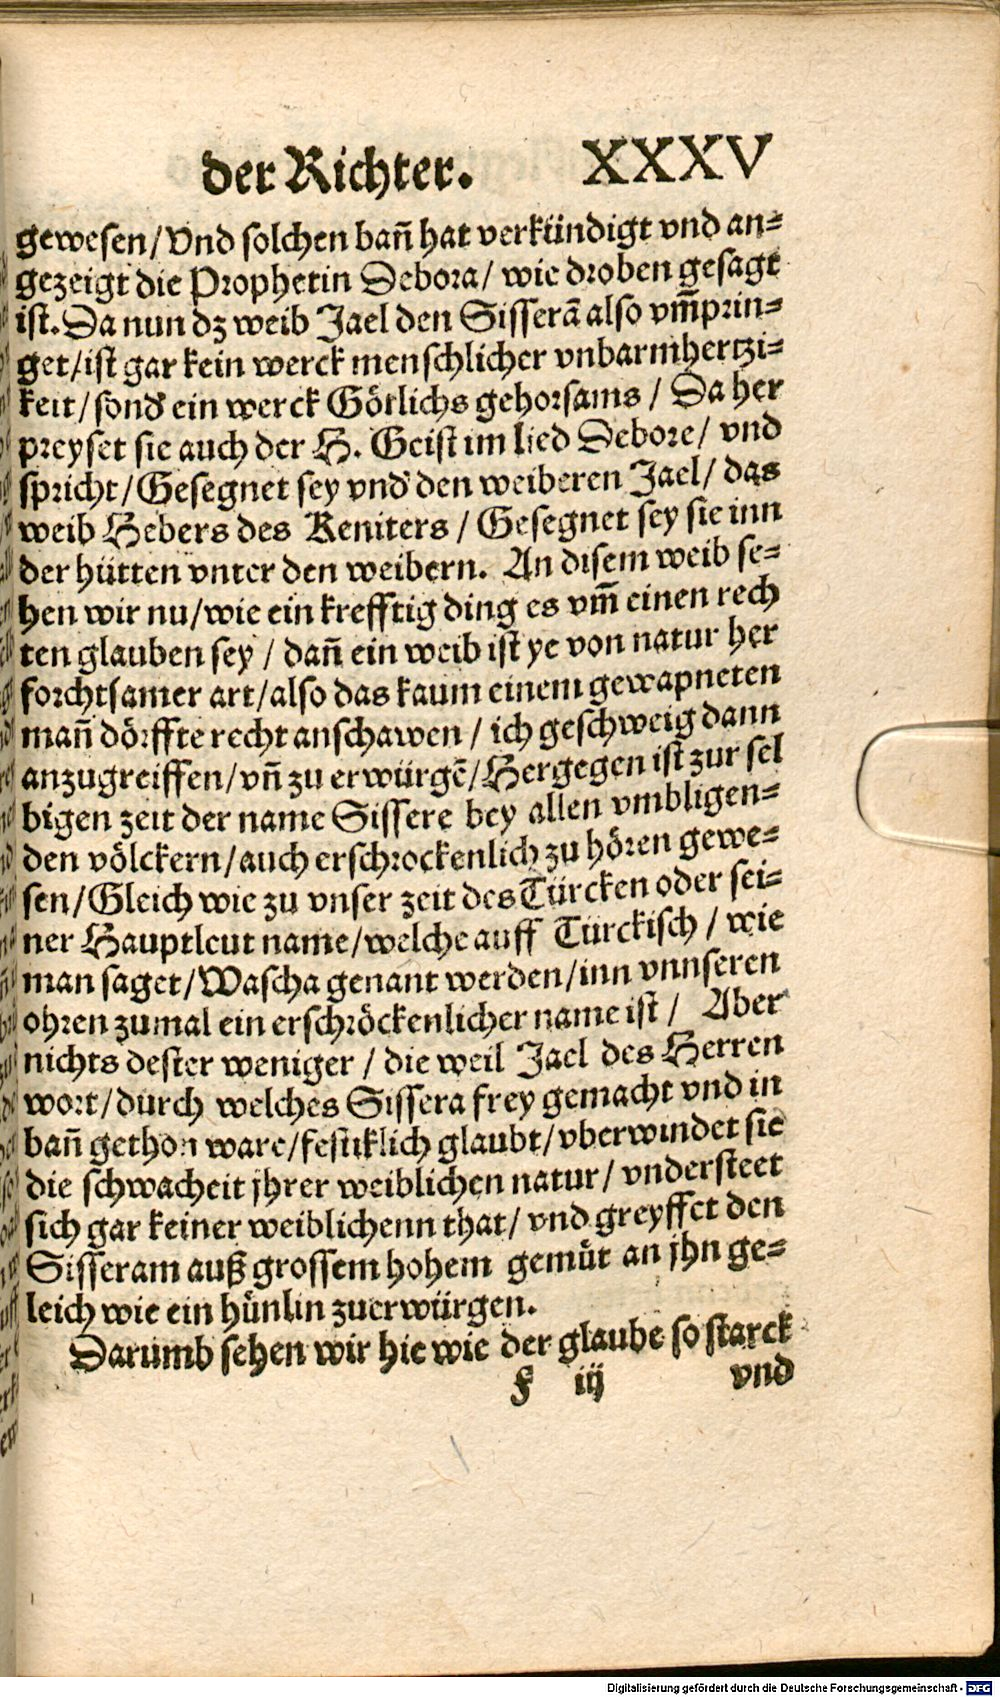 der Richter. XXXV
gewesen/Vnd solchen bañ hat verkündigt vnd an⸗
gezeigt die Prophetin Debora/ wie droben gesagt
ist. Da nun dz weib Jael den Sisserã also vm̃prin⸗
get/ist gar kein werck menschlicher vnbarmhertzi⸗
keit/sond̕ ein werck Götlichs gehorsams / Da her
preyset sie auch der H. Geist im lied Debore/ vnd
spricht/Gesegnet sey vnd̕ den weiberen Jael/ das
weib Hebers des Keniters / Gesegnet sey sie inn
der hütten vnter den weibern. An disem weib se⸗
hen wir nu/wie ein krefftig ding es vm̃ einen rech
ten glauben sey / dañ ein weib ist ye von natur her
forchtsamer art/also das kaum einem gewapneten
mañ dörffte recht anschawen / ich geschweig dann
anzugreiffen/vñ zu erwürgẽ/Hergegen ist zur sel
bigen zeit der name Sissere bey allen vmbligen⸗
den völckern/auch erschrockenlich zu hören gewe⸗
sen/Gleich wie zu vnser zeit des Türcken oder sei⸗
ner Hauptleut name/welche auff Türckisch / wie
man saget/Wascha genant werden/inn vnnseren
ohren zumal ein erschröckenlicher name ist / Aber
nichts dester weniger / die weil Jael des Herren
wort/durch welches Sissera frey gemacht vnd in
bañ gethon ware/festiklich glaubt/vberwindet sie
die schwacheit jhrer weiblichen natur/ vndersteet
sich gar keiner weiblichenn that/ vnd greyffet den
Sisseram auß grossem hohem gemüt an jhn ge⸗
leich wie ein hünlin zuerwürgen.
Darumb sehen wir hie wie der glaube so starck
f iij vnd
Digitalisierung gefördert durch die Deutsche Forschungsgemeinschaft - DFG